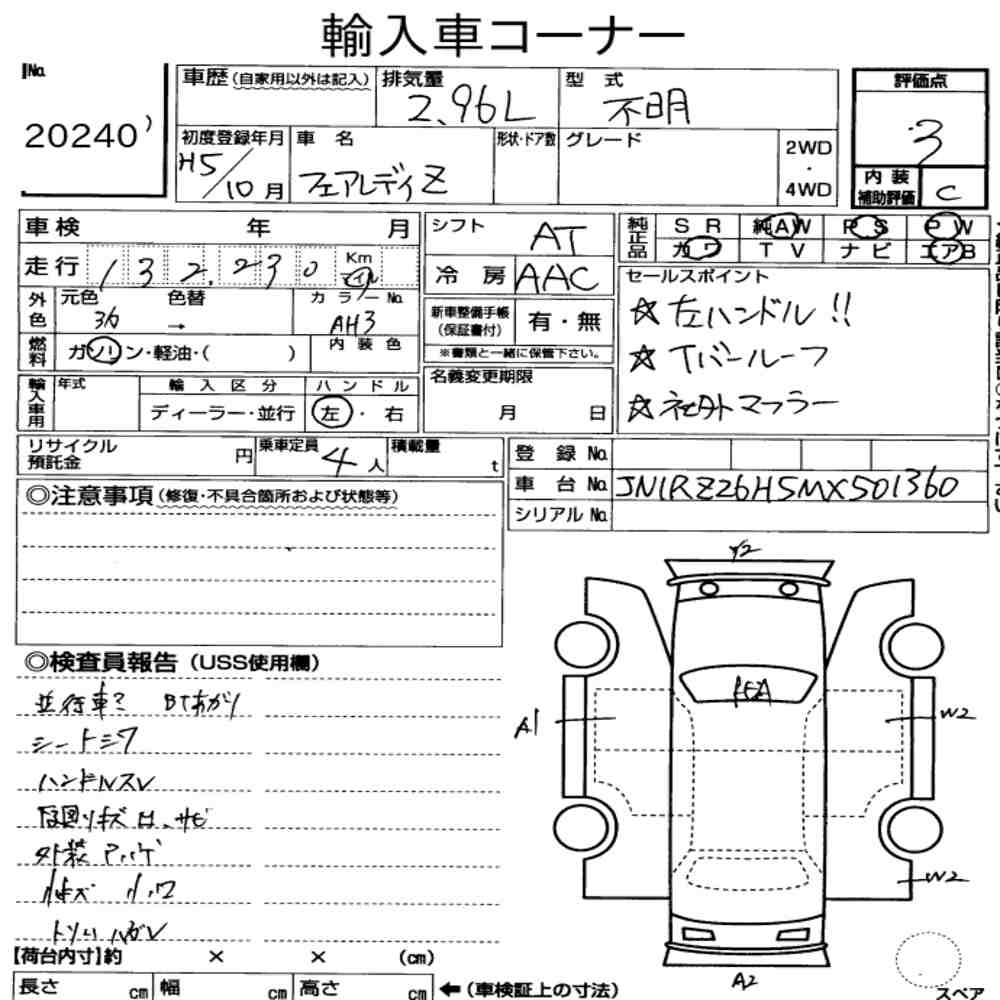 輸入車コーナー
No.
20240
車歴(自家用以外は記入)
排気量
2.96L
型式
不明
評価点
3
初度登録年月
H5/10月
車名
フェアレディZ
形状・ドア数
グレード
2WD
・
4WD
内装
補助評価
C
車検 年 月
シフト
AT
純正品
SR 純AW PS PW
カワ TV ナビ エアB
走行 132,230 Km
マイル
冷房 AAC
セールスポイント
☆左ハンドル!!
☆Tバールーフ
☆社外マフラー
外色
元色
色替
→
カラーNo.
AH3
新車整備手帳
(保証書付)
有・無
※書類と一緒に保管下さい。
燃料
ガソリン・軽油・( )
内装色
輸入車用
年式
輸入区分
ディーラー・並行
ハンドル
左・右
名義変更期限
月 日
リサイクル
預託金
円
乗車定員
4人
積載量
t
登録No.
車台No. JN1RZ26H5MX501360
シリアルNo.
◎注意事項(修復・不具合箇所および状態等)
◎検査員報告(USS使用欄)
並行車? BTあがり
シートシワ
ハンドルスレ
下回りキズ凹、サビ
外装
Y2
A1
W2
W2
A2
【荷台内寸】約 × × (cm)
長さ cm 幅 cm 高さ cm ←(車検証上の寸法)
スペア